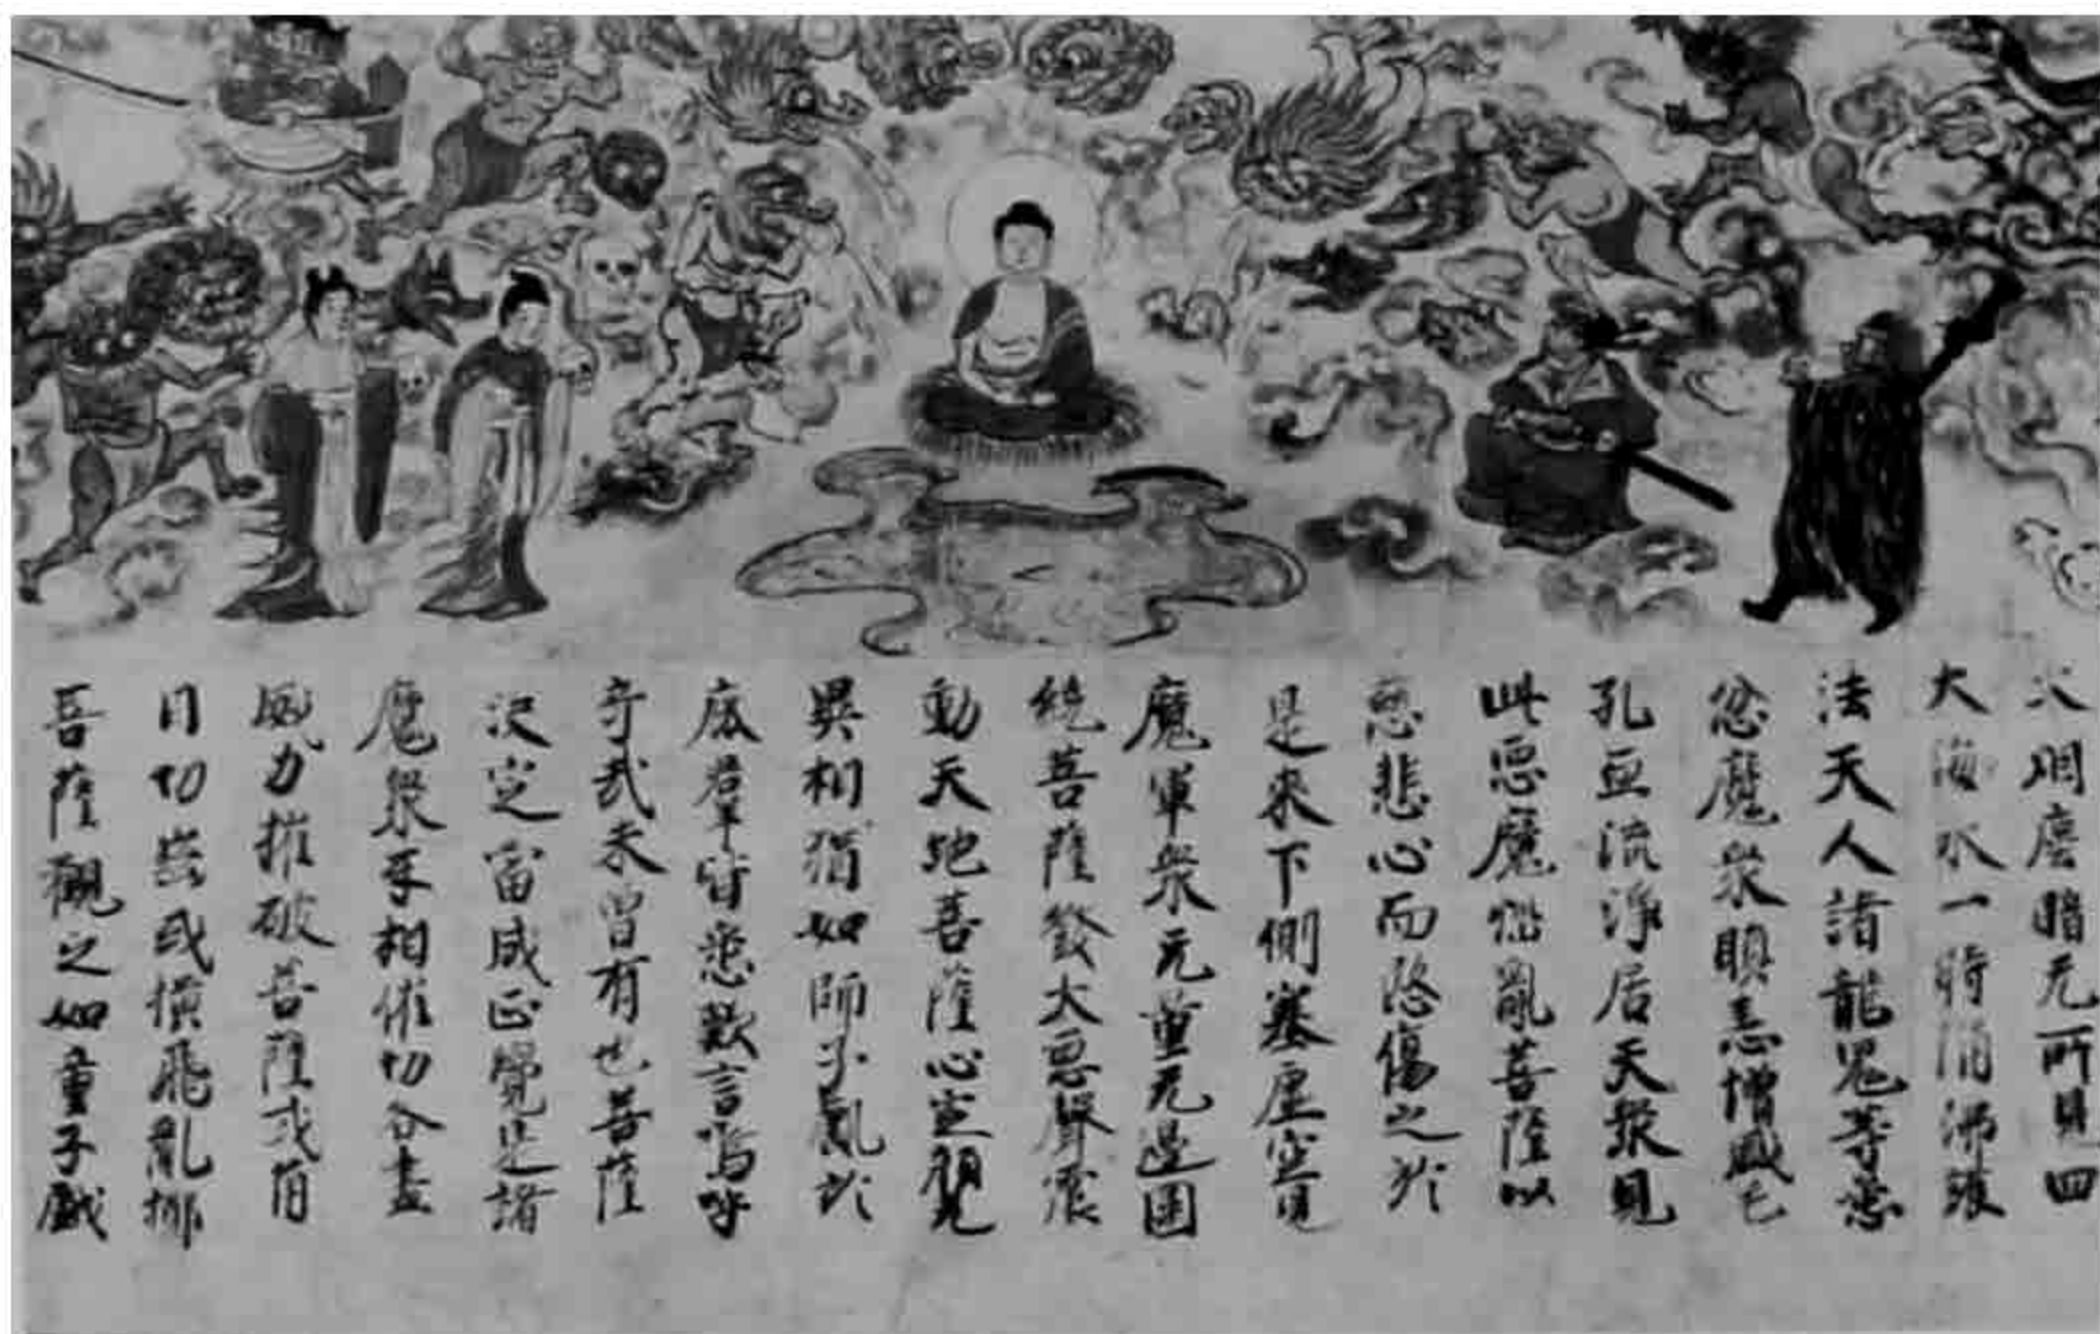 火烟塵暗无所見四
大海水一時涌沸護
法天人諸龍鬼等悉
忿魔衆瞋恚增盛毛
孔血流淨居天衆見
此惡魔惱亂菩薩以
慈悲心而愍傷之於
是來下側塞虛空見
魔軍衆无量无邊圍
繞菩薩發大惡聲震
動天地菩薩心定顔无
異相猶如師子處於
鹿羣皆悉歎言嗚呼
奇哉未曾有也菩薩
決定當成正覺是諸
魔衆互相催切各盡
威力摧破菩薩或角
目切齒或横飛亂擲
菩薩觀之如童子戯